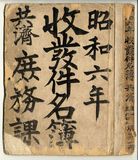 昭和六年
收發件名簿
共濟庶務課